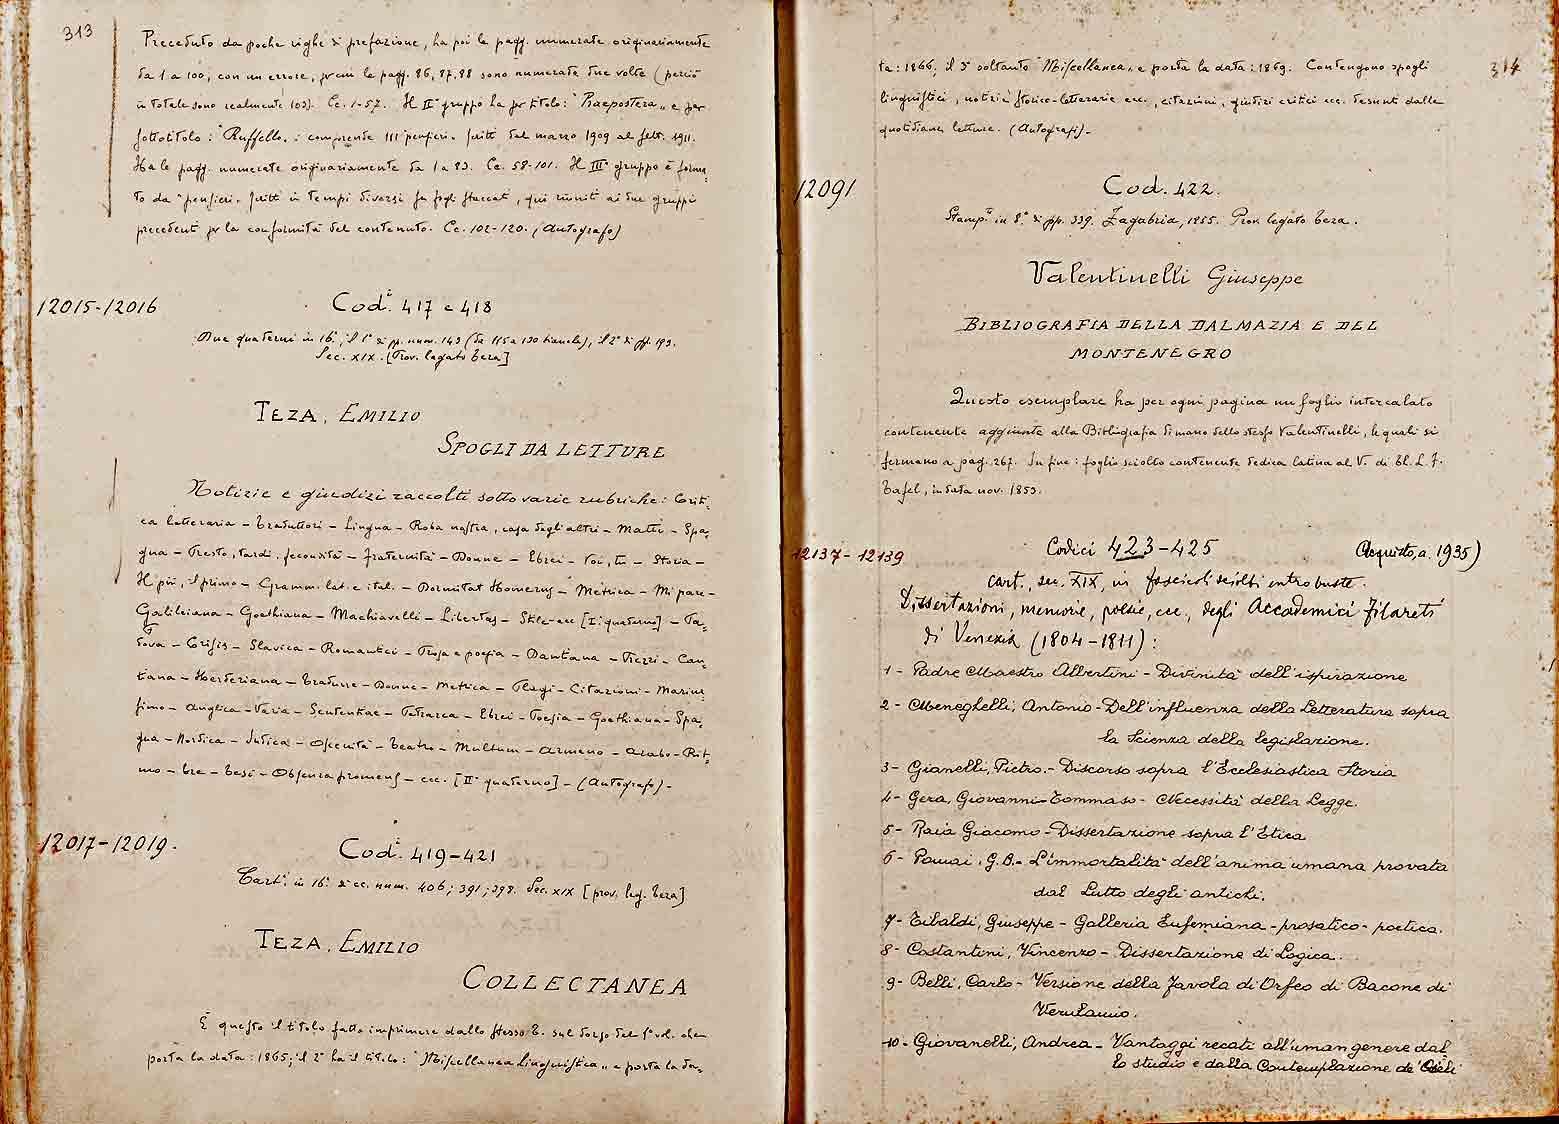 313
Preceduto da poche righe di prefazione, ha poi le pagg. numerate originariamente
da 1 a 100, con un errore, per cui le pagg. 86, 87, 88 sono numerate due volte (perciò
in totale sono realmente 103). Cc. 1-57. Il II° gruppo ha per titolo: "Praepostera" e per
sottotitolo: "Ruffello": comprende 111 pensieri scritti dal marzo 1909 al febb. 1911.
Ha le pagg. numerate originariamente da 1 a 83. Cc. 58-101. Il III° gruppo è forma-
to da "pensieri" scritti in tempi diversi su fogli staccati, qui riuniti ai due gruppi
precedenti per la conformità del contenuto. Cc. 102-120. (Autografo)
12015-12016
Cod.i 417 e 418
Due quaderni in 16°, il 1° di pp. num. 143 (da 115 a 130 bianche), il 2° di pp. 193.
Sec. XIX. [Prov. legato Teza]
TEZA, EMILIO
SPOGLI DA LETTURE
Notizie e giudizi raccolti sotto varie rubriche: Criti-
ca letteraria – Traduttori – Lingua – Roba nostra, casa degli altri – Matti – Spa-
gna – Presto, tardi, fecondità – Fraternità – Donne – Ebrei – Voi, tu – Storia –
Il più, il primo – Gramm. lat. e ital. – Dormitat Homerus – Metrica – Mi pare –
Galileiana – Goethiana – Machiavelli – Libertas – Stile – ecc [I° quaderno] – Pa-
dova – Crisis – Slavica – Romantici – Prosa e poesia – Dantiana – Prezzi – Can-
tiana – Herderiana – Tradurre – Donne – Metrica – Plagi – Citazioni – Marini
simo – Anglica – Varia – Sententiae – Petrarca – Ebrei – Poesia – Goethiana – Spa-
gna – Nordica – Indica – Oscenità – Teatro – Multum – Armeno – Arabo – Rit-
mo – Tre – Tesi – ecc. [II° quaderno] – (Autografo).
12017-12019.
Cod.i 419-421
Cart.i in 16° di cc. num. 406; 391; 398. Sec. XIX [prov. leg. Teza]
TEZA, EMILIO
COLLECTANEA
È questo il titolo fatto imprimere dallo stesso T. sul dorso del 1° vol. che
porta la data: 1865; il 2° ha il titolo: "Miscellanea Linguistica" e porta la da-
314
ta: 1866; il 3° soltanto "Miscellanea" e porta la data: 1869. Contengono spogli
linguistici, notizie storico-letterarie ecc., citazioni, giudizi critici ecc. desunti dalle
quotidiane letture. (Autografi).
12091
Cod. 422.
Stamp.° in 8° di pp. 339. Zagabria, 1855. Prov. legato Teza.
Valentinelli Giuseppe
BIBLIOGRAFIA DELLA DALMAZIA E DEL
MONTENEGRO
Questo esemplare ha per ogni pagina un foglio intercalato
contenente aggiunte alla Bibliografia di mano dello stesso Valentinelli, le quali si
fermano a pag. 267. In fine: foglio sciolto contenente dedica latina al V. di Th. L. F.
Tafel, in data nov. 1853.
12137-12139
Codici 423-425 (Acquisto, a. 1935)
cart., sec. XIX, in fascicoli sciolti entro buste.
Dissertazioni, memorie, poesie, ecc., degli Accademici Filareti
di Venezia (1804-1811):
1- Padre Maestro Albertini - Divinità dell'ispirazione
2- Meneghelli, Antonio - Dell'influenza della Letteratura sopra
la Scienza della legislazione.
3- Gianelli, Pietro. - Discorso sopra l'Ecclesiastica Storia
4- Gera, Giovanni-Tommaso - Necessità della Legge.
5- Raia Giacomo - Dissertazione sopra l'Etica
6- Pamai, G.B. - L'immortalità dell'anima umana provata
dal Lutto degli antichi.
7- Tibaldi, Giuseppe - Galleria Eufemiana - prosatico - poetica.
8- Costantini, Vincenzo - Dissertazione di Logica.
9- Belli, Carlo - Versione della Favola di Orfeo di Bacone di
Verulamio.
10- Giovanelli, Andrea - Vantaggi recati all'uman genere dal-
lo studio e dalla Contemplazione de' Cieli